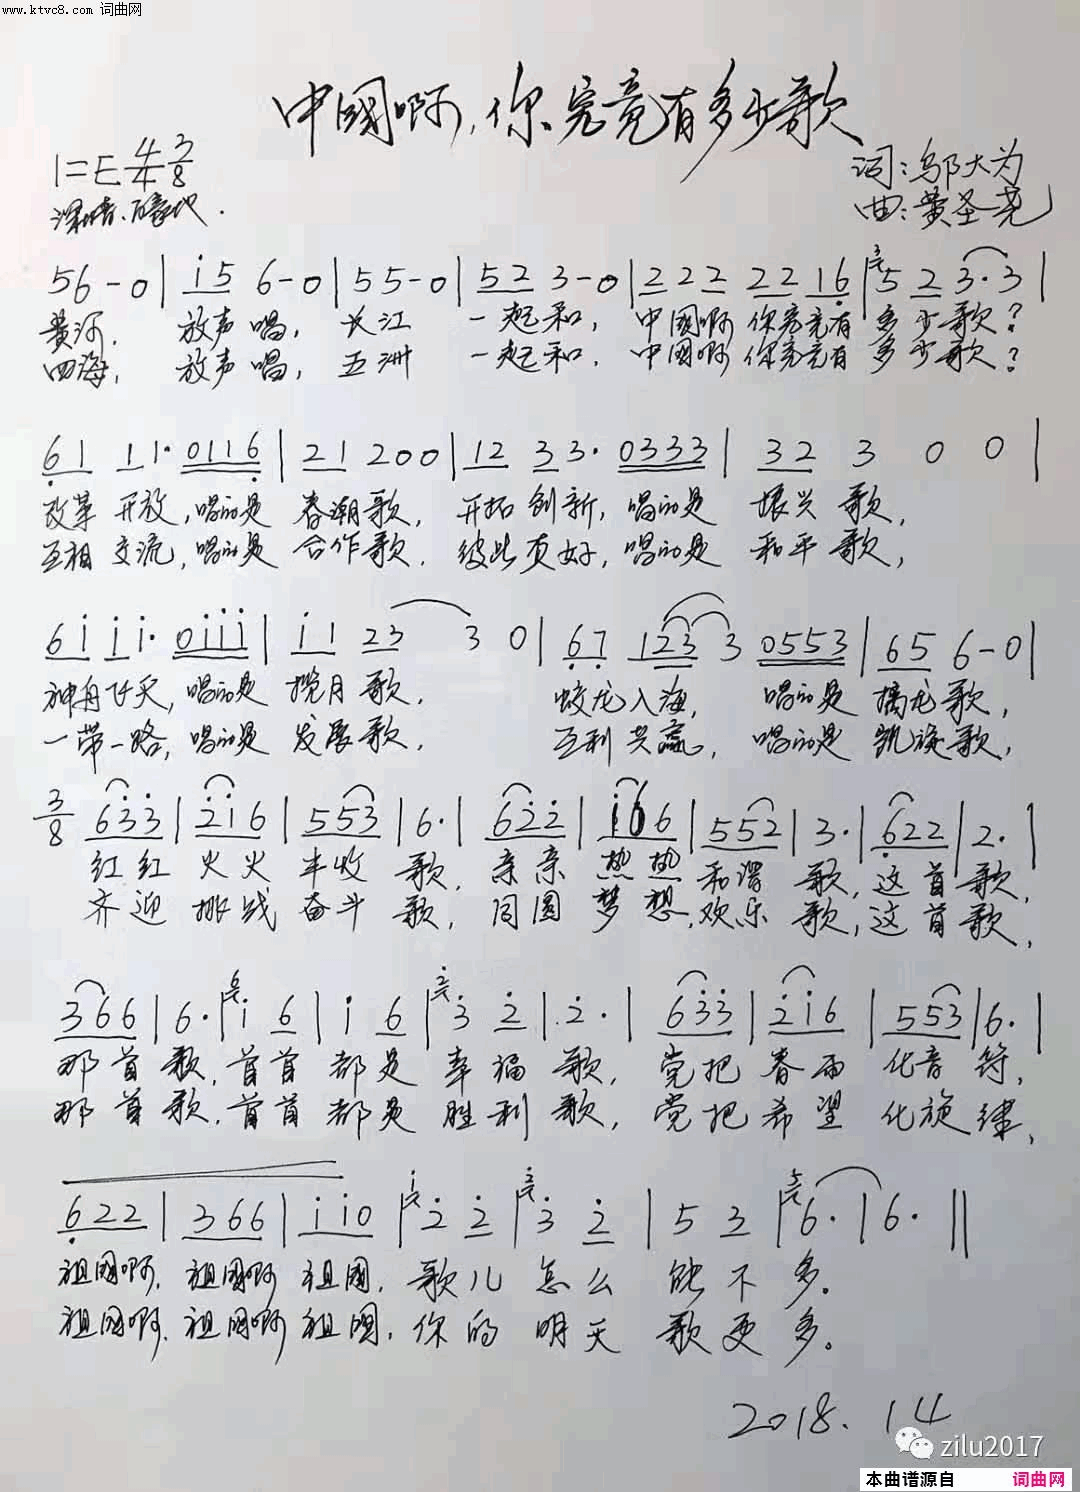 www.ktvc8.com 词曲网
中國啊,你究竟有多少歌
1=E 4/4 3/8
词:邬大为
深情、豪迈地.
曲:黄圣尧
56-0|i5 6-0|55-0|52 3-0|222 22 16|5 2 3·3|
黄河, 放声唱, 长江 一起和, 中國啊 你究竟有 多少歌?
四海, 放声唱, 五洲 一起和, 中國啊 你究竟有 多少歌?
61 11· 0116|21 200|12 33· 0333|32 3 0 0|
改革 开放,唱的是 春潮歌, 开拓创新, 唱的是 振兴歌,
互相交流,唱的是 合作歌, 彼此友好, 唱的是 和平歌,
6i ii· 0iii|i1 23 3 0|67 123 3 0553|65 6-0|
神舟飞天,唱的是 揽月歌, 蛟龙入海, 唱的是 擒龙歌,
一带一路,唱的是 发展歌, 互利共赢, 唱的是 凯旋歌,
3/8 633|2i6|553|6·|622|i66|552|3·|622|2·|
红红 火火 丰收 歌, 亲亲 热热 和谐 歌,这首歌,
齐迎 挑战 奋斗 歌, 同圆 梦想,欢乐 歌,这首歌,
366|6·|i 6|i 6|3 2|2·|633|2i6|553|6·|
那首歌,首首 都是 幸福歌, 党把 春雨 化音符,
那首歌,首首 都是 胜利歌, 党把 希望 化旋律,
622|366|ii0|2 2|3 2|5 3|6·|6·||
祖国啊, 祖国啊 祖国, 歌儿 怎么 能不多.
祖国啊, 祖国啊 祖国, 你的 明天 歌更多。
2018.14
zilu2017
本曲谱源自 词曲网